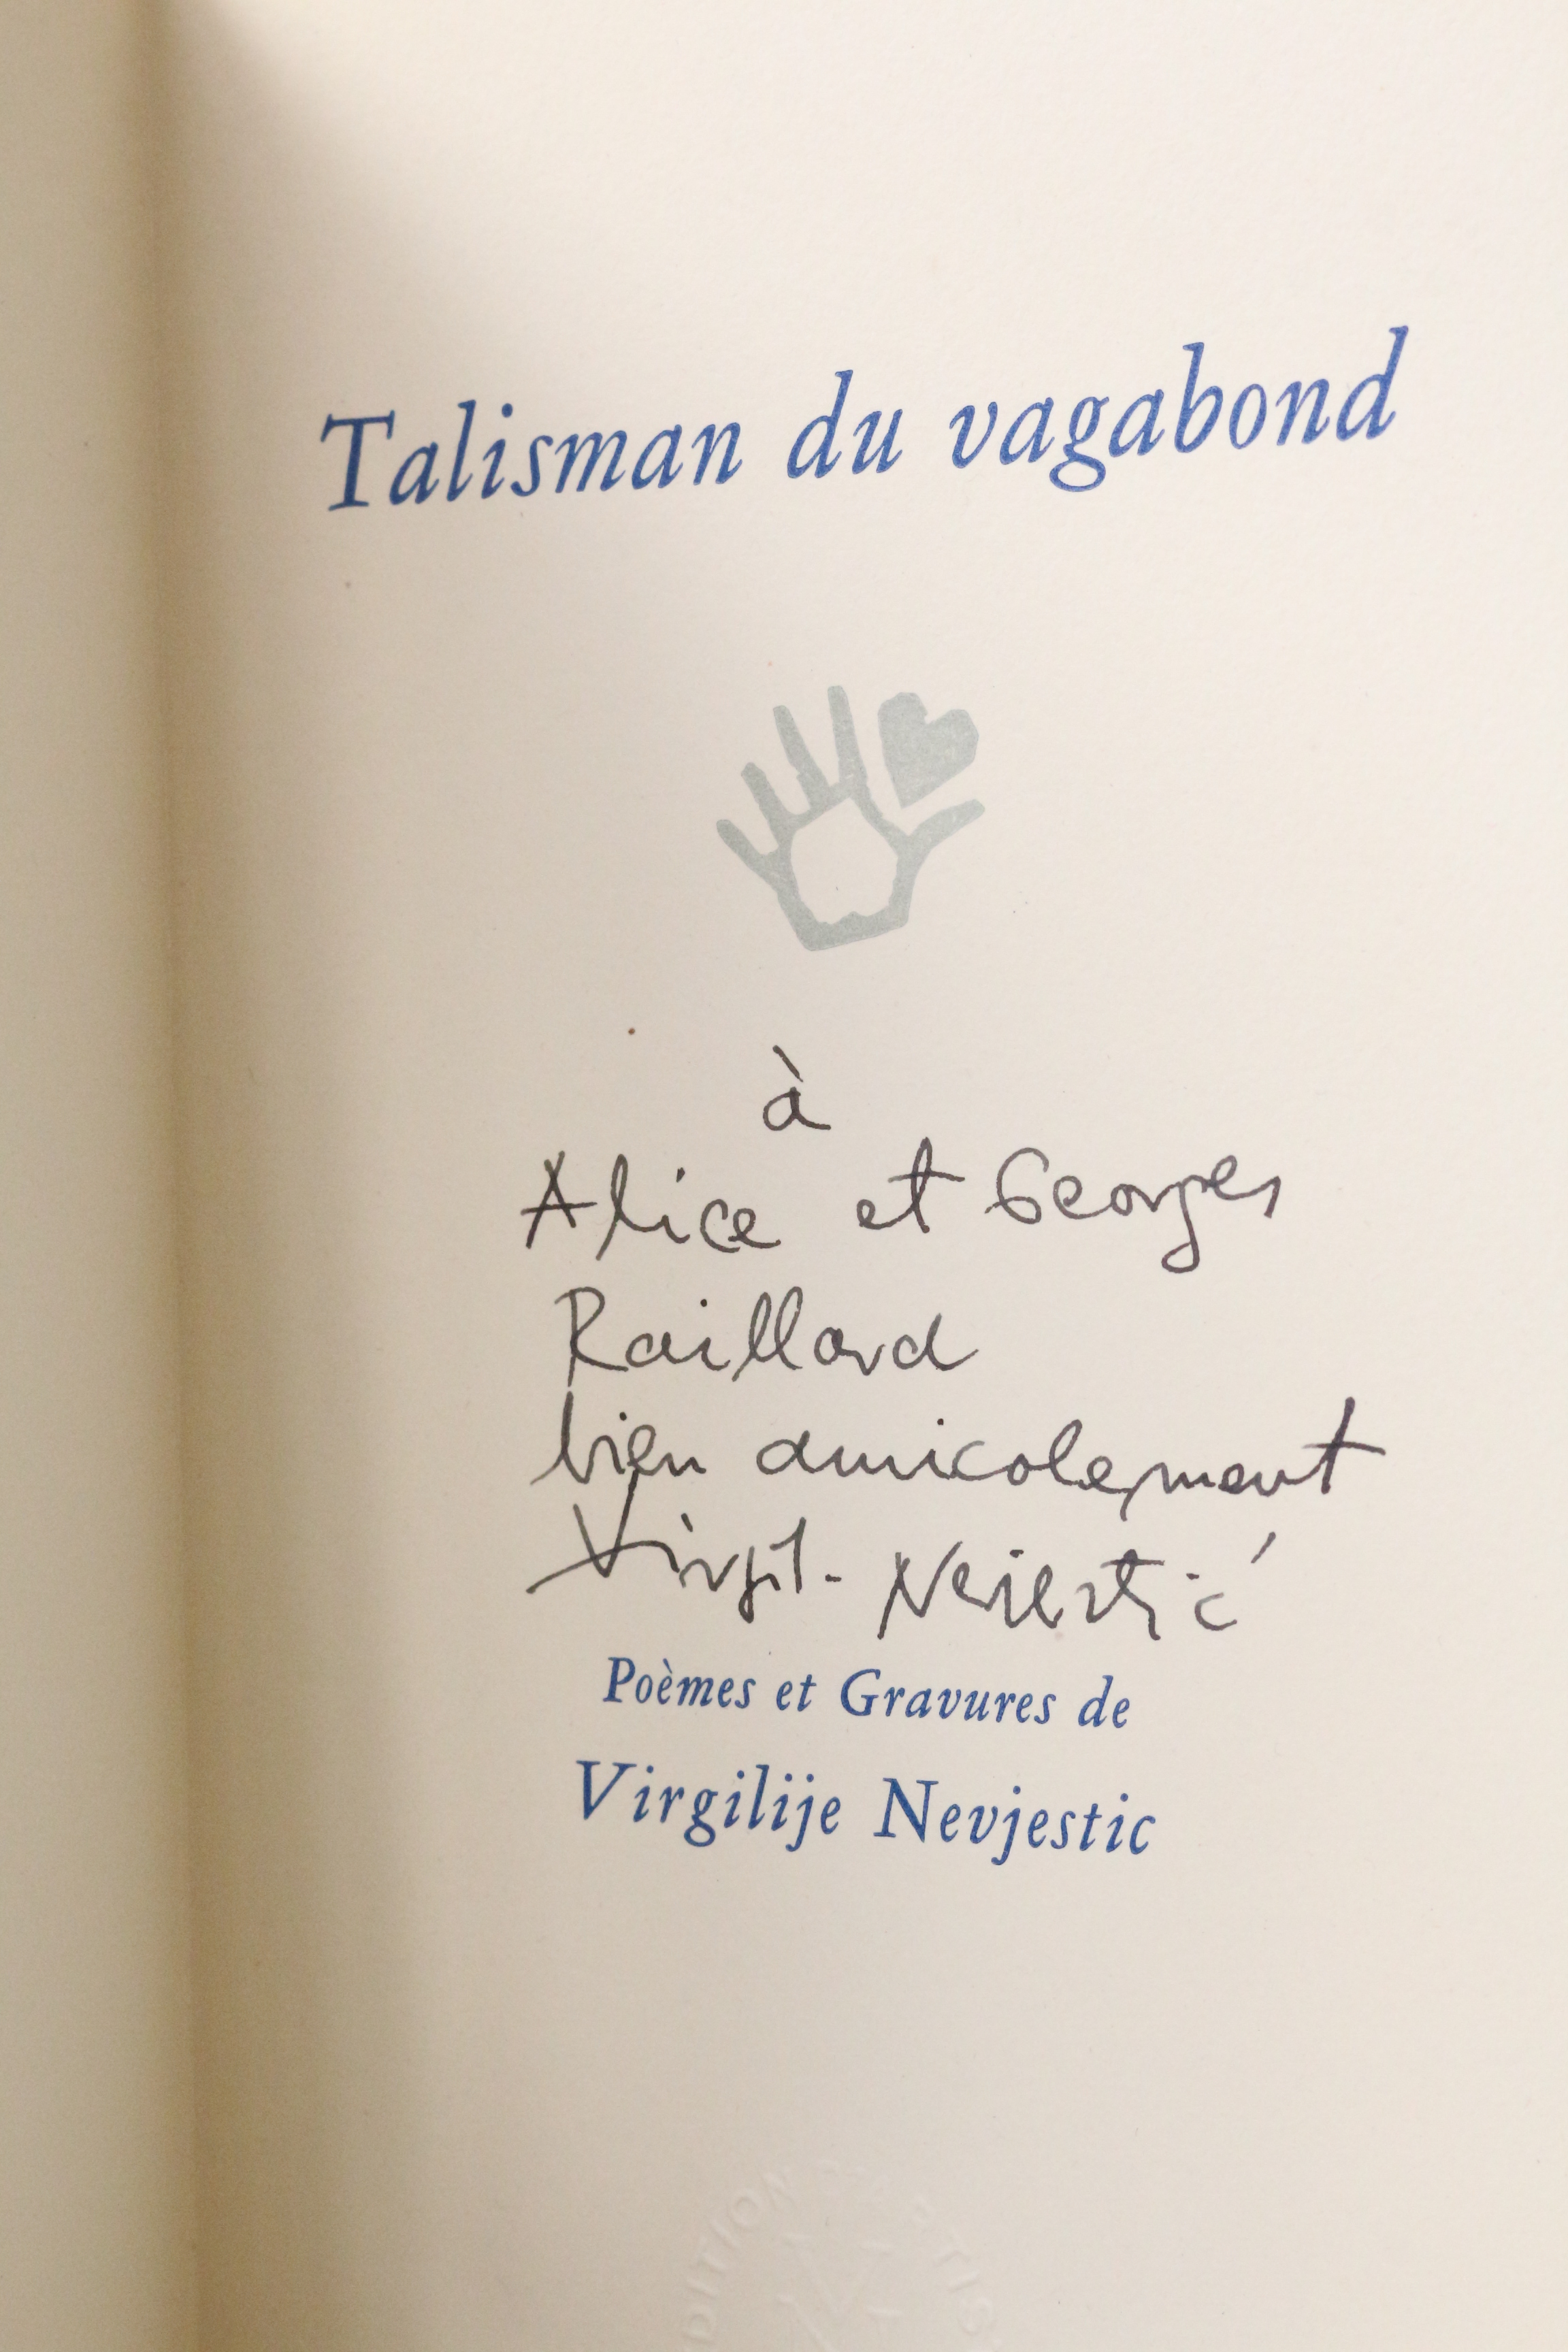 Talisman du vagabond
à
Alice et Georges
Raillard
bien amicalement
Virgil. Nevjestić
Poèmes et Gravures de
Virgilije Nevjestic